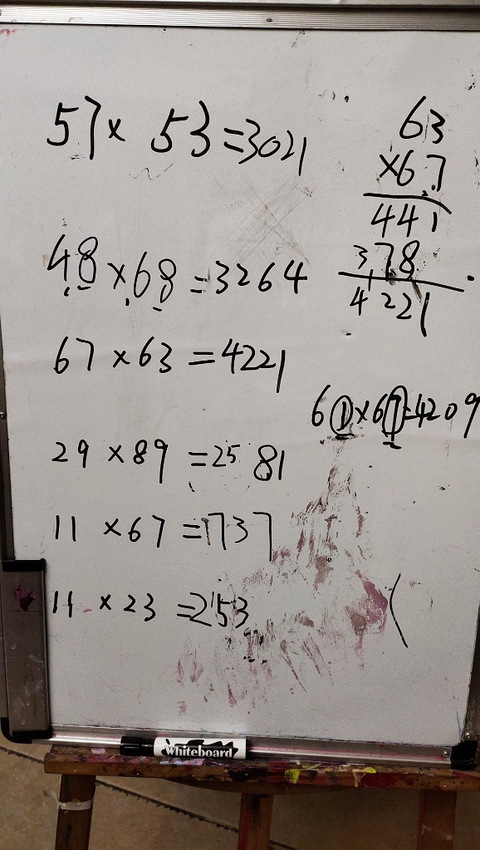 57 × 53 = 3021
48 × 68 = 3264
67 × 63 = 4221
29 × 89 = 2581
11 × 67 = 1737
11 × 23 = 253
63
×67
441
378
4221
61×67=4209
Whiteboard